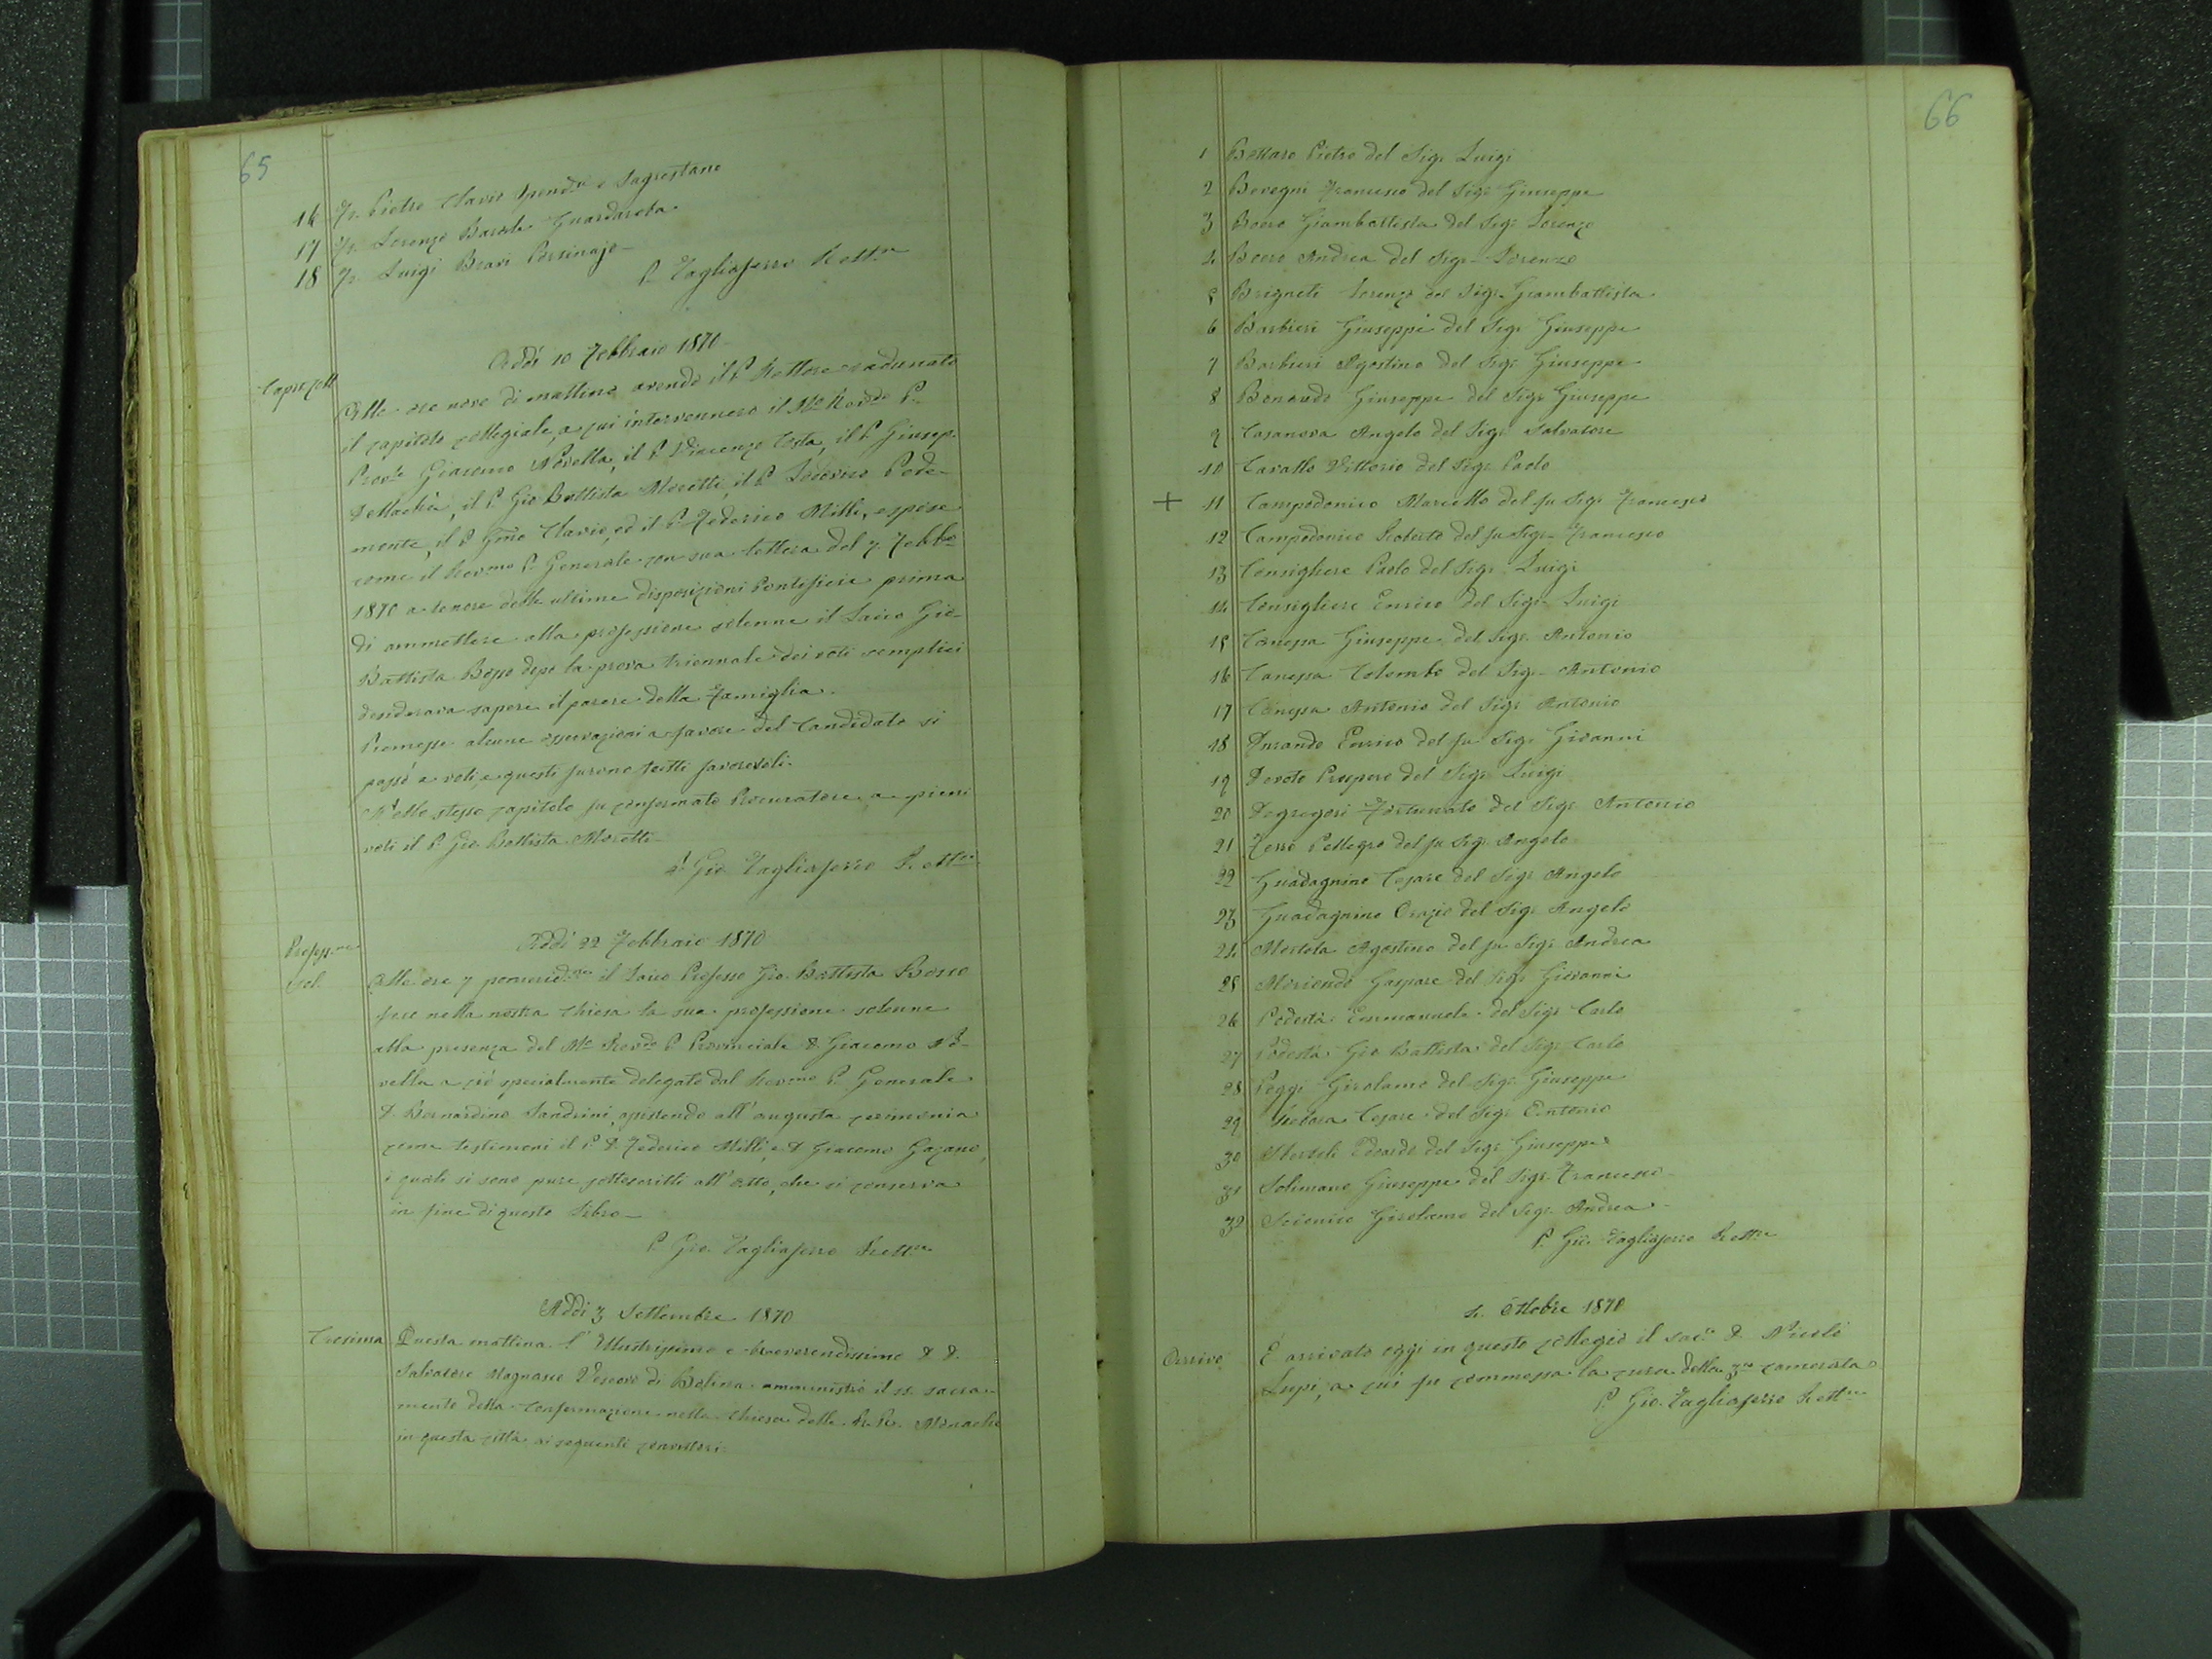 65
16 Fr. Pietro Clavio Spend.re e Sagrestano
17 Fr. Lorenzo Barale Guardaroba.
18 Fr. Luigi Bravi Portinajo—
P. Tagliaferro Rett.re
Addì 10 Febbraio 1870—
Cap.º Coll.
Alle ore nove di mattina avendo il P. Rettore radunato
il capitolo collegiale, a cui intervennero il M.º Rev.do P.
Prov.le Giacomo Novella, il P. Vincenzo Costa, il P. Giusep.
Dellachà, il P. Gio Battista Moretti, il P. Lodovico Pode-
mente, il P. Clavio, ed il P. Federico Milli, espose
come il Rev.mo P. Generale con sua lettera del 7. Febb.º
1870 a tenore delle ultime disposizioni Pontificie prima
di ammettere alla professione solenne il Laico Gio-
Battista Bosso dopo la prova triennale dei voti semplici
desiderava sapere il parere della Famiglia.
Premesse alcune osservazioni a favore del Candidato si
passò a voti, e questi furono tutti favorevoli.
Nello stesso capitolo fu confermato Procuratore a pieni
voti il P. Gio Battista Moretti—
P. Gio Tagliaferro Rett.re
Addì 22 Febbraio 1870
Profess.ne
sol.
Alle ore 7 pomerid.ne il Laico Professo Gio. Battista Bosso
fece nella nostra Chiesa la sua professione solenne
alla presenza del M.º Rev.do P. Provinciale D. Giacomo No-
vella a ciò specialmente delegato dal Rev.mo P. Generale
D. Bernardino Sandrini, assistendo all'augusta cerimonia
come testimoni il P. D. Federico Milli, e D. Giacomo Gazano,
i quali si sono pure sottoscritti all'atto, che si conserva
in fine di questo Libro—
P. Gio. Tagliaferro Rett.re
Addì 3 Settembre 1870
Cresima
Questa mattina l'Illustrissimo e Reverendissimo D. D.
Salvatore Magnasco Vescovo di Bolina amministrò il ss. sacra-
mento della Confermazione nella Chiesa delle R.R. Monache
in questa città ai seguenti convittori:
66
1 Bottaro Pietro del Sig. Luigi
2 Bevegni Francesco del Sig. Giuseppe
3 Boero Giambattista del Sig. Lorenzo
4 Boero Andrea del Sig. Lorenzo
5 Brigneti Lorenzo del Sig. Giambattista.
6 Barbieri Giuseppe del Sig. Giuseppe
7 Barbieri Agostino del Sig. Giuseppe
8 Bonaudo Giuseppe del Sig. Giuseppe
9 Casanova Angelo del Sig. Salvatore
10 Cavallo Vittorio del Sig. Paolo
+ 11 Campodonico Marcello del fu Sig. Francesco
12 Campodonico Roberto del fu Sig. Francesco
13 Consigliere Paolo del Sig. Luigi
14 Consigliere Enrico del Sig. Luigi
15 Canessa Giuseppe del Sig. Antonio
16 Canessa Colombo del Sig. Antonio
17 Canessa Antonio del Sig. Antonio
18 Durando Enrico del fu Sig. Giovanni
19 Devoto Prospero del Sig. Luigi
20 Degregori Fortunato del Sig. Antonio
21 Ferro Pellegro del fu Sig. Angelo
22 Guadagnino Cesare del Sig. Angelo
23 Guadagnino Orazio del Sig. Angelo
24 Mortola Agostino del fu Sig. Andrea
25 Moriondo Gaspare del Sig. Giovanni
26 Podestà Emmanuele del Sig. Carlo
27 Podestà Gio Battista del Sig. Carlo
28 Poggi Girolamo del Sig. Giuseppe
29 Rebora Cesare del Sig. Antonio
30 Edoardo del Sig. Giuseppe
31 Solimano Giuseppe del Sig. Francesco
32 Girolamo del Sig. Andrea—
P. Gio. Tagliaferro Rett.re
4. Ottobre 1870
Arrivo
È arrivato oggi in questo collegio il sac.e D. Nicolò
Lupi, a cui fu commessa la cura della 3.za camerata
P. Gio. Tagliaferro Rett.re